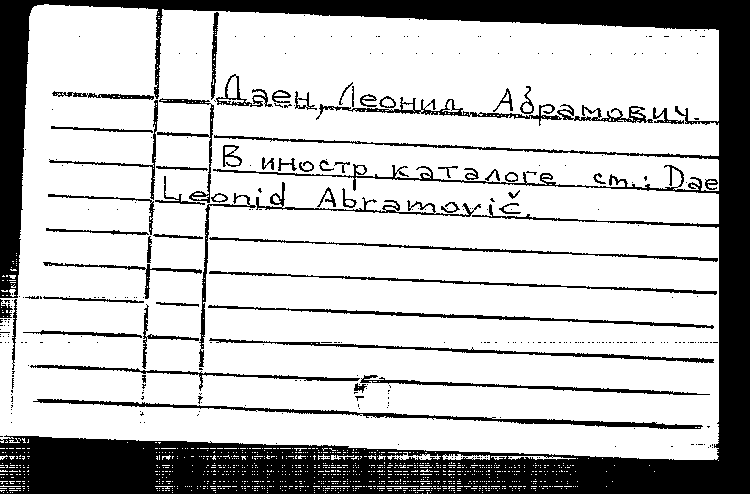 Даен, Леонид Абрамович.
В иностр. каталоге см.: Dae
Leonid Abramovič.